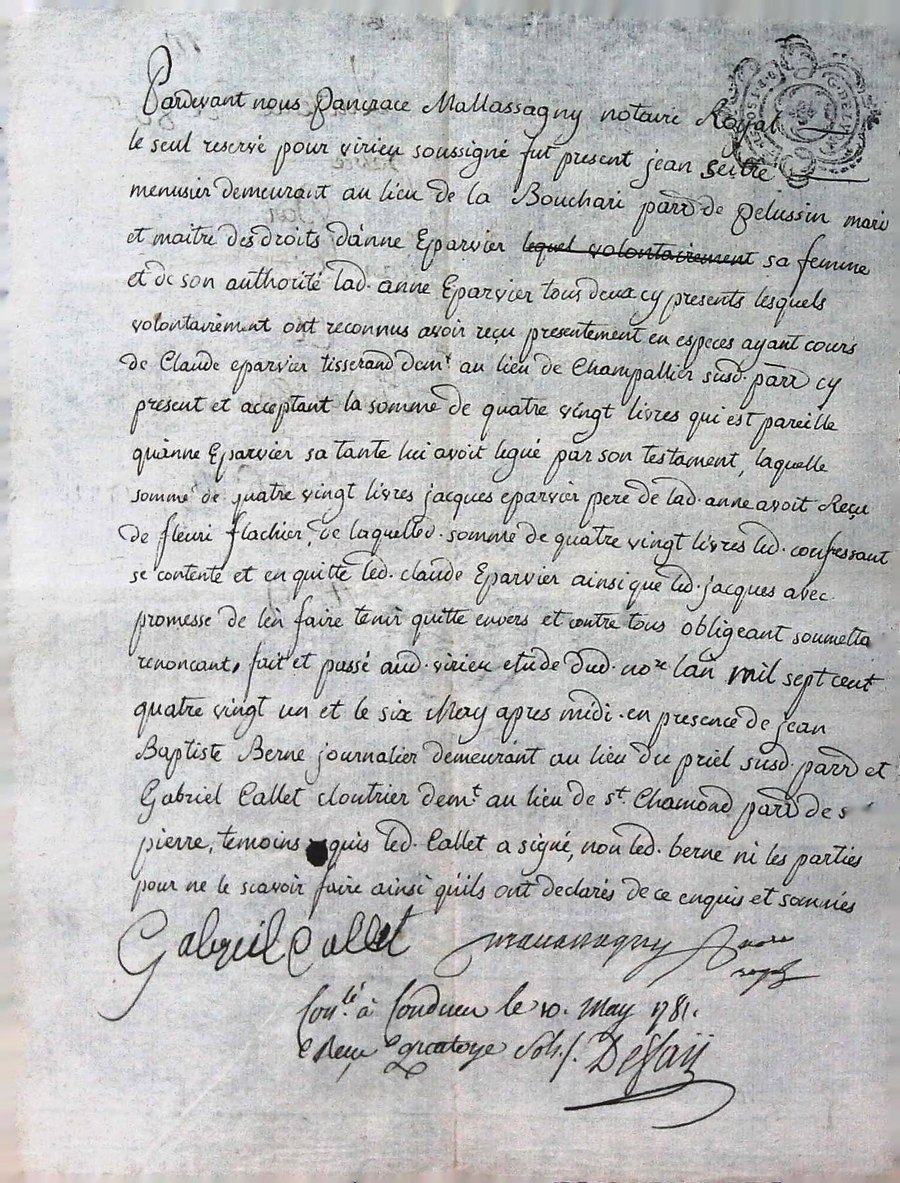 Pardevant nous Pancrace Mallassagny notaire Royal
le seul reservé pour virieu soussigné fut present jean seitre
menusier demeurant au lieu de la Bouchari parr de pelussin mari
et maitre des droits danne Eparvier lequel volontairement sa femme
et de son authorité lad. anne Eparvier tous deux cy presents lesquels
volontairement ont reconnus avoir reçu presentement en especes ayant cours
de Claude eparvier tisserand demt au lieu de Champallier susd. parr cy
present et acceptant la somme de quatre vingt livres qui est pareille
quanne Eparvier sa tante lui avoit legué par son testament, laquelle
somme de quatre vingt livres jacques eparvier pere de lad. anne avoit Reçu
de fleuri flachier, de laquelled. somme de quatre vingt livres led. confessant
se contente et en quitte led. claude Eparvier ainsi que led. jacques avec
promesse de len faire tenir quitte envers et contre tous obligeant soumetta
renoncant, fait et passé aud. virieu etude dud. nore lan mil sept cent
quatre vingt un et le six May apres midi. en presence de jean
Baptiste Berne journalier demeurant au lieu du priel susd. parr et
Gabriel Callet cloutrier demt. au lieu de st. Chamond parr de s
pierre, temoins requis led. Callet a signé, non led. berne ni les parties
pour ne le scavoir faire ainsi quils ont declarés de ce enquis et sommés
Gabreil Callet Mallassagny nore
royal
Conlé. à Condrieu le 10. May 1781.
Reçu quatorze sols /.